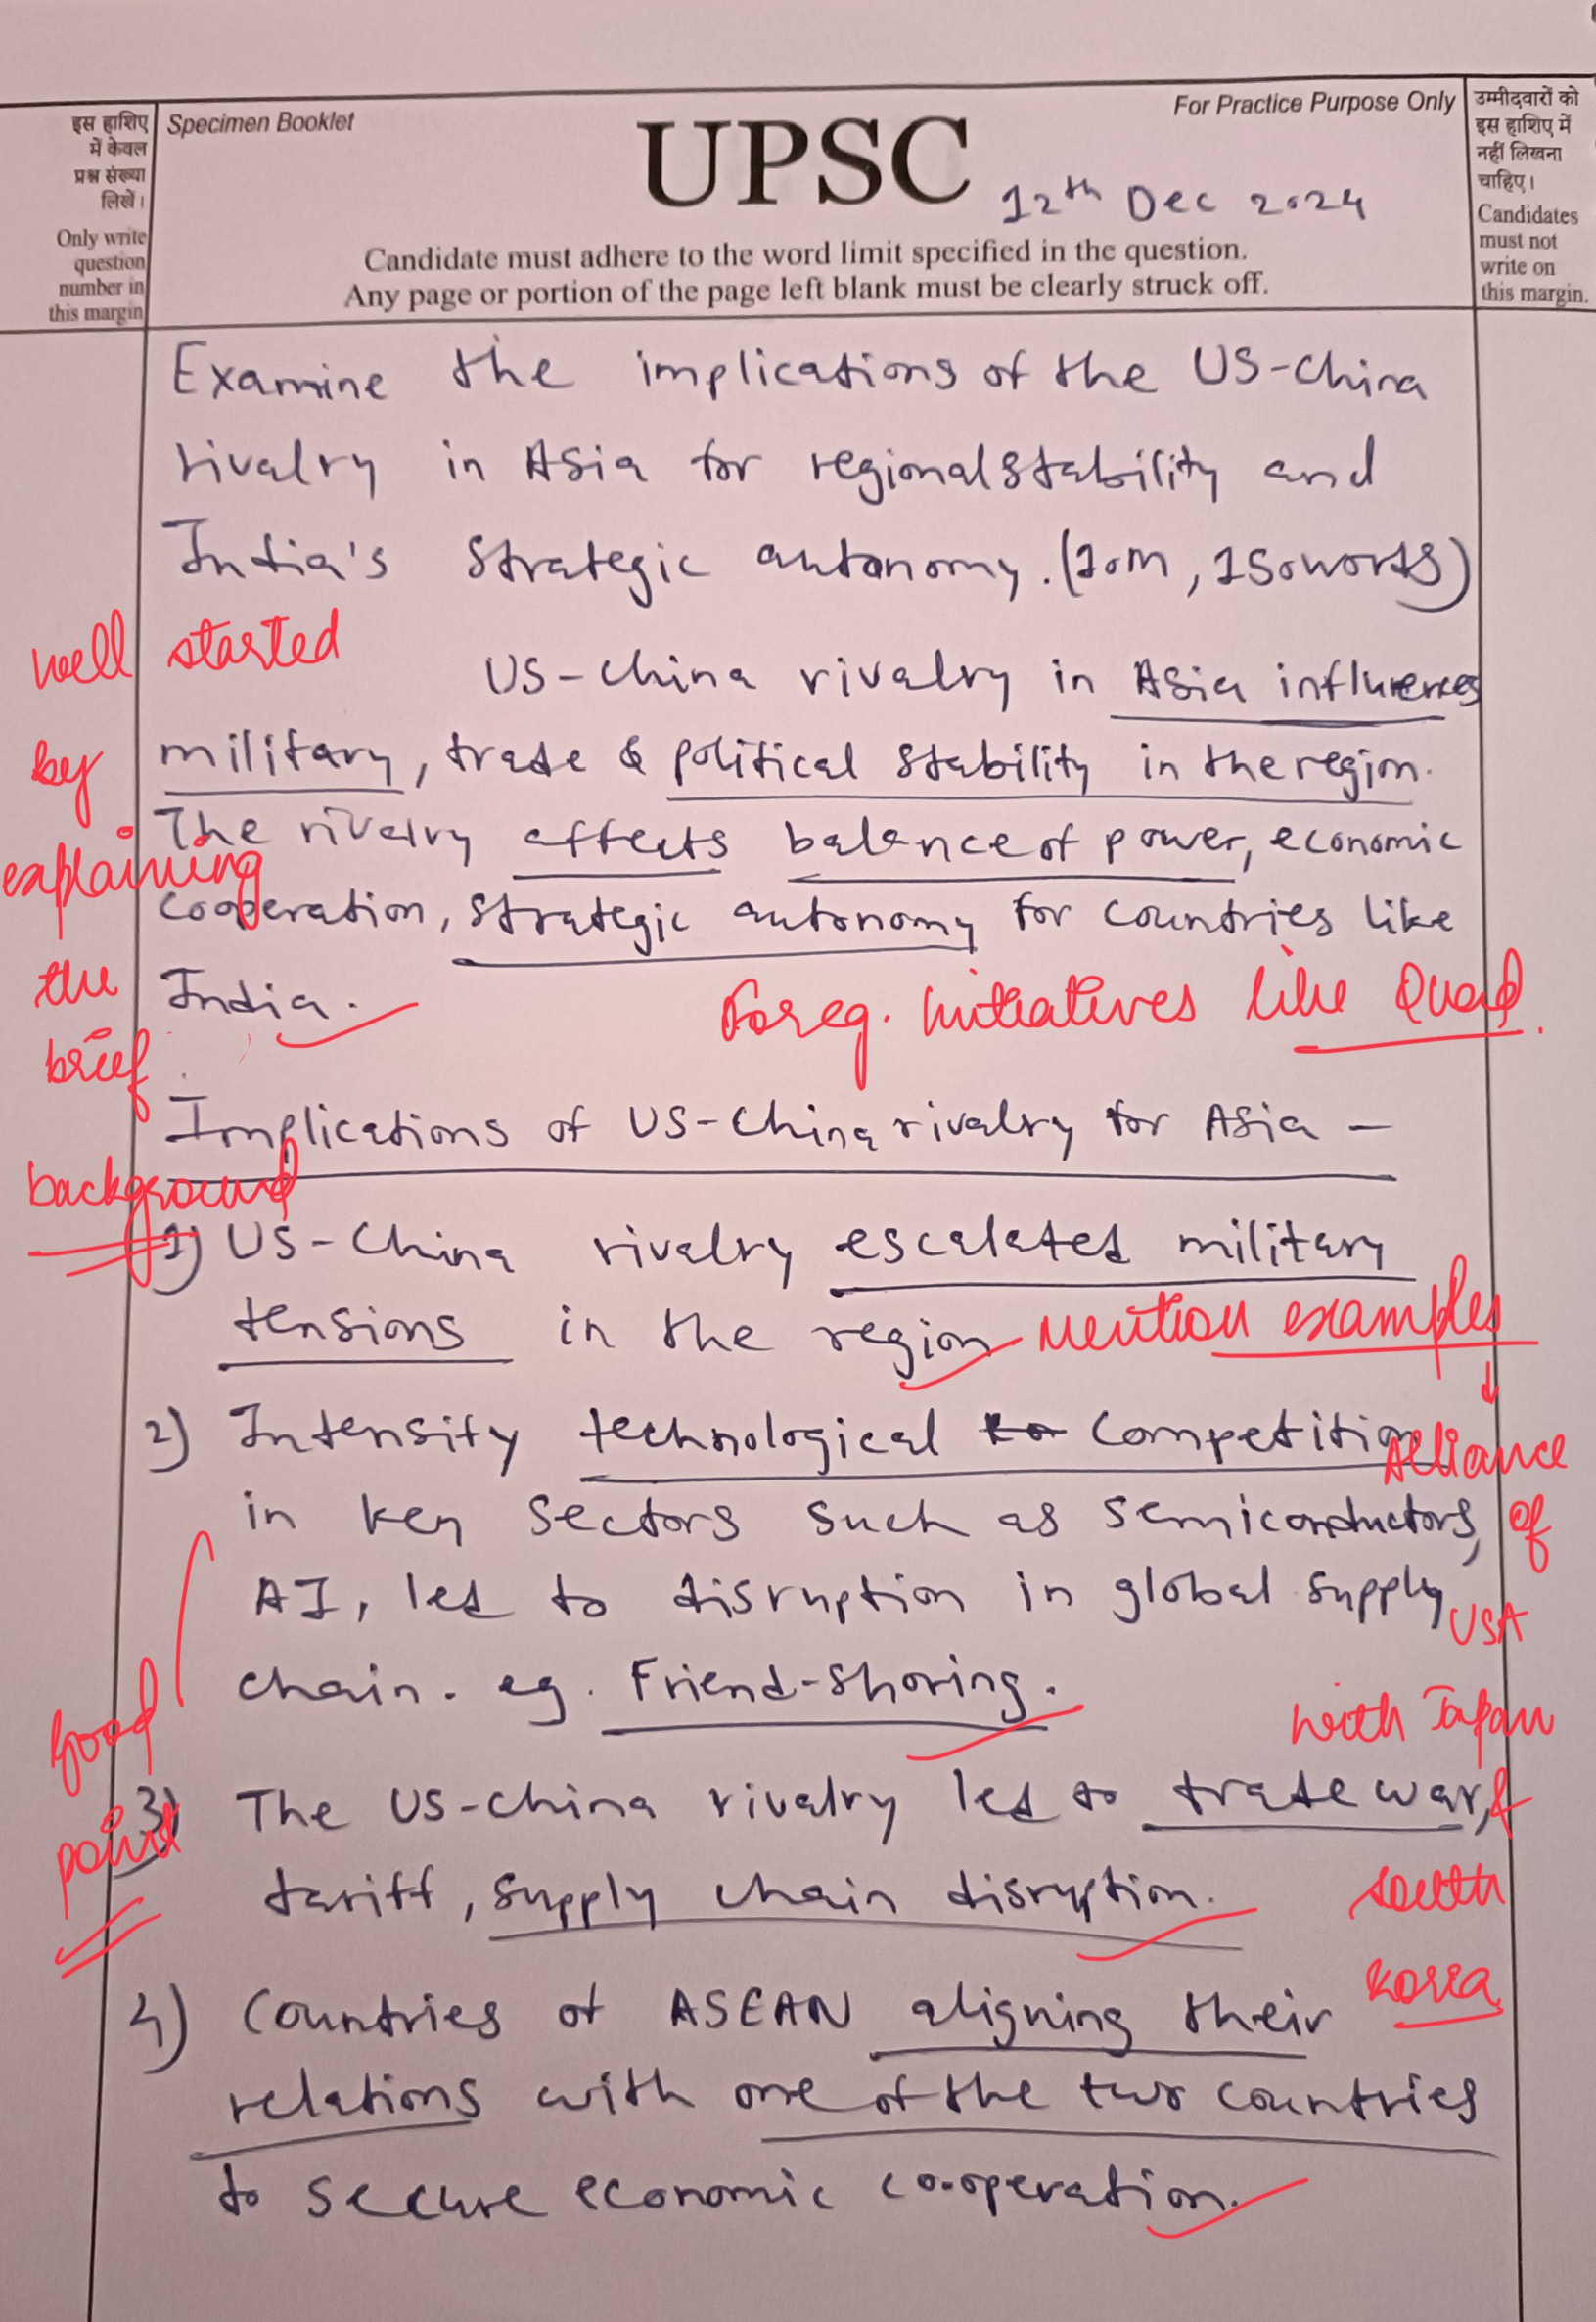 इस हाशिए
में केवल
प्रश्न संख्या
लिखें।
Only write
question
number in
this margin
Specimen Booklet
UPSC
For Practice Purpose Only
12th Dec 2024
Candidate must adhere to the word limit specified in the question.
Any page or portion of the page left blank must be clearly struck off.
उम्मीदवारों को
इस हाशिए में
नहीं लिखना
चाहिए।
Candidates
must not
write on
this margin.
Examine the implications of the US-China
rivalry in Asia for regional stability and
India's strategic autonomy. (10M, 150words)
well started
by
explaining
the
brief
background
US-China rivalry in Asia influences
military, trade & political stability in the region.
The rivalry affects balance of power, economic
cooperation, strategic autonomy for countries like
India.
For eg. initiatives like Quad.
Implications of US-China rivalry for Asia -
1) US-China rivalry escalated military
tensions in the region
Mention examples
↓
Alliance
of
USA
with Japan
&
South
Korea
2) Intensity technological competition
in key sectors such as semiconductors,
AI, led to disruption in global supply
chain. eg. Friend-shoring.
Good
point
3) The US-China rivalry led to trade war,
tariff, supply chain disruption.
4) Countries of ASEAN aligning their
relations with one of the two countries
to secure economic co-operation.